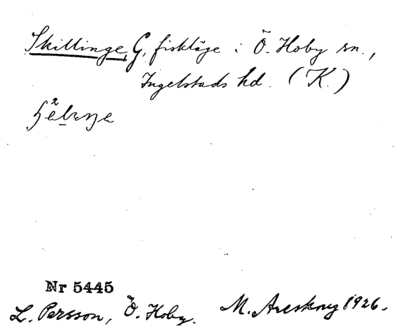 Skillinge, G, fiskläge i Ö. Hoby sn.,
Ingelstads hd. (K.)
Nr 5445
L. Persson, Ö. Hoby. M. Areskoug 1926.